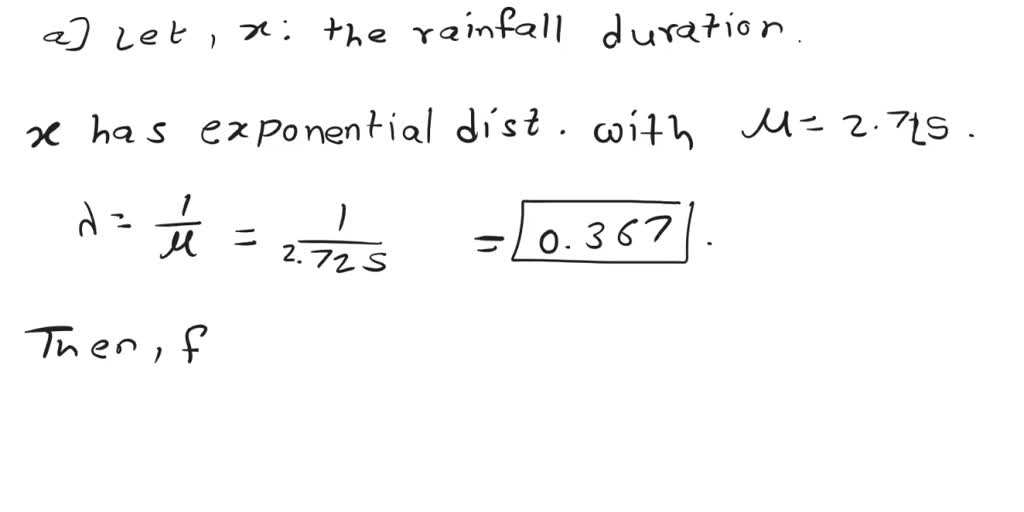 a] Let, x: the rainfall duration.
x has exponential dist. with μ = 2.725.
λ = 1/μ = 1/2.725 = 0.367.
Then, f